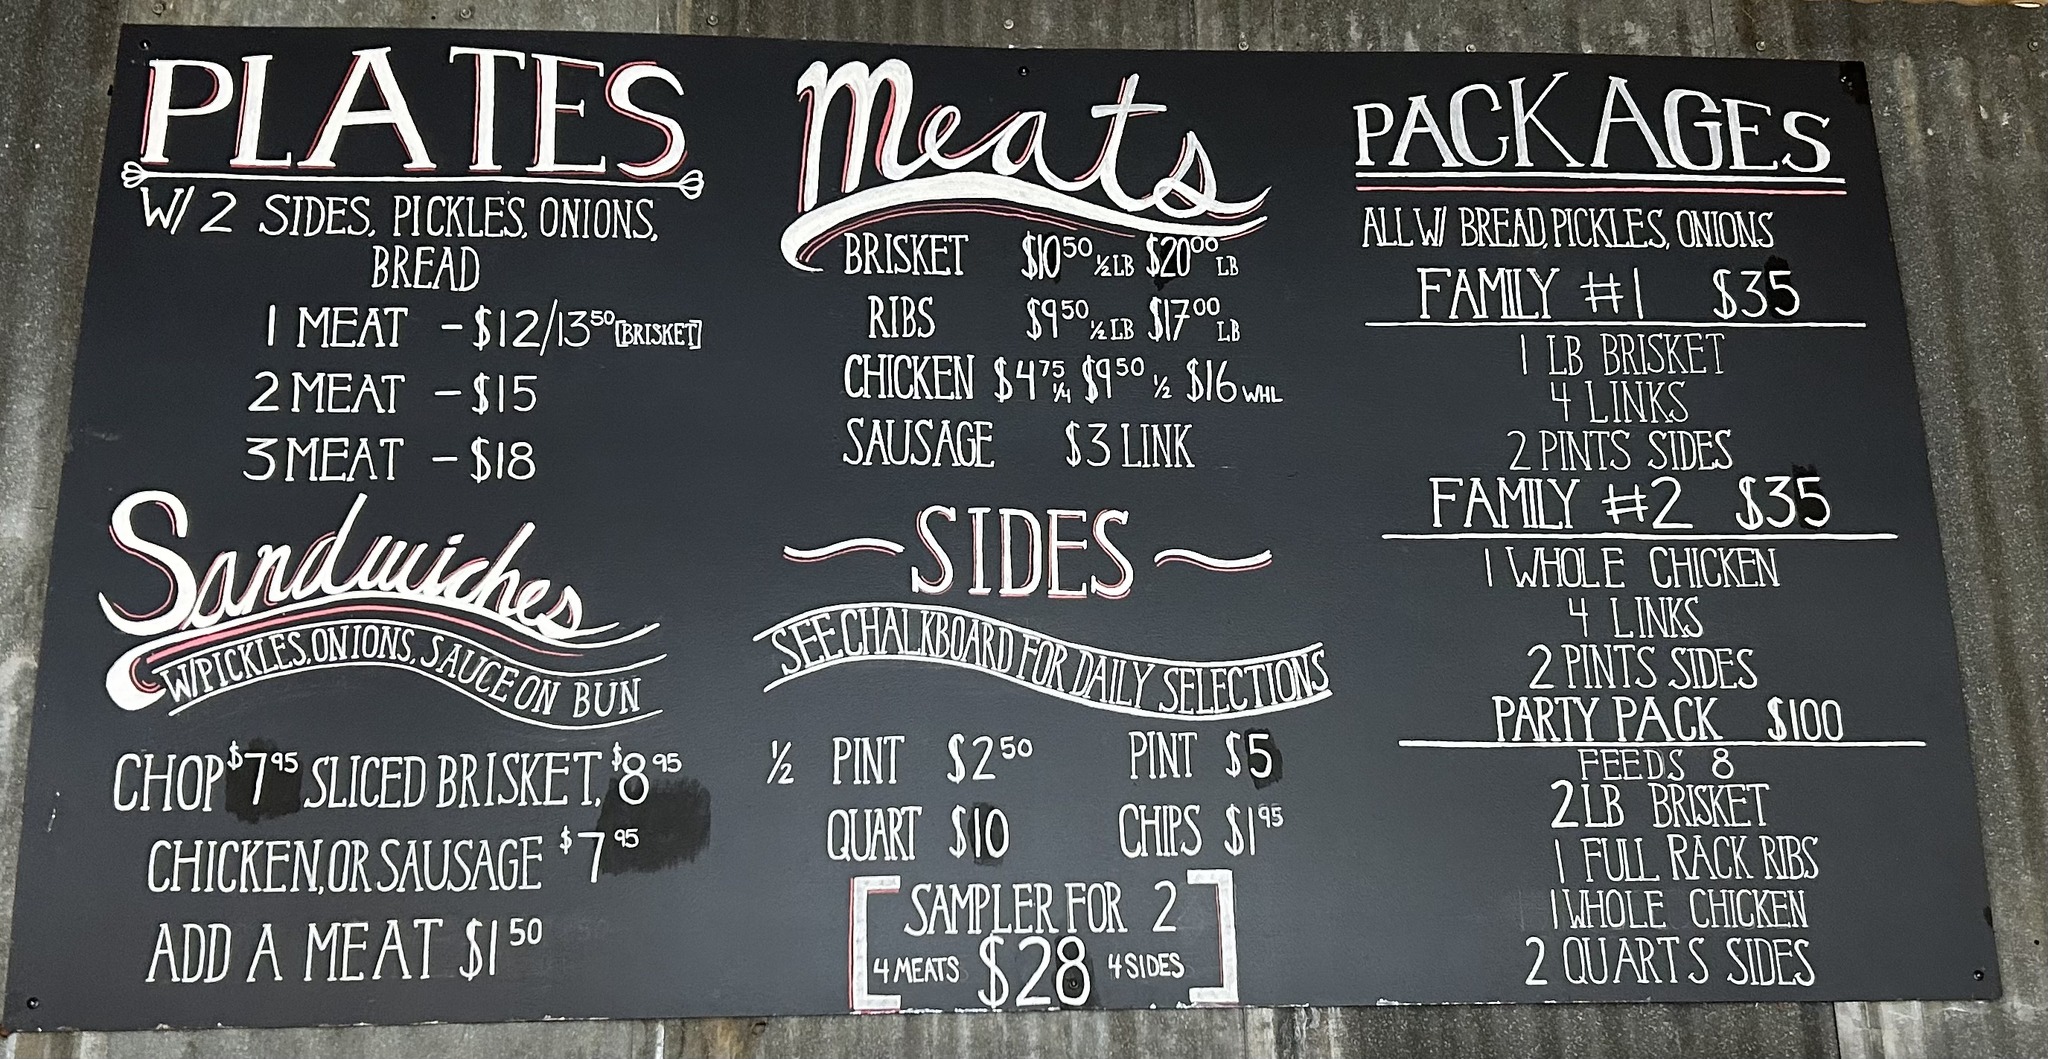 PLATES
W/ 2 SIDES, PICKLES, ONIONS,
BREAD
1 MEAT - $12/13.50 [BRISKET]
2 MEAT - $15
3 MEAT - $18
Sandwiches
W/PICKLES, ONIONS, SAUCE ON BUN
CHOP $7.95 SLICED BRISKET, $8.95
CHICKEN, OR SAUSAGE $7.95
ADD A MEAT $1.50
Meats
BRISKET $10.50 ½ LB $20.00 LB
RIBS $9.50 ½ LB $17.00 LB
CHICKEN $4.75 ¼ $9.50 ½ $16 WHL
SAUSAGE $3 LINK
SIDES
SEE CHALKBOARD FOR DAILY SELECTIONS
½ PINT $2.50 PINT $5
QUART $10 CHIPS $1.95
SAMPLER FOR 2
4 MEATS $28 4 SIDES
PACKAGES
ALL W/ BREAD, PICKLES, ONIONS
FAMILY #1 $35
1 LB BRISKET
4 LINKS
2 PINTS SIDES
FAMILY #2 $35
1 WHOLE CHICKEN
4 LINKS
2 PINTS SIDES
PARTY PACK $100
FEEDS 8
2 LB BRISKET
1 FULL RACK RIBS
1 WHOLE CHICKEN
2 QUARTS SIDES